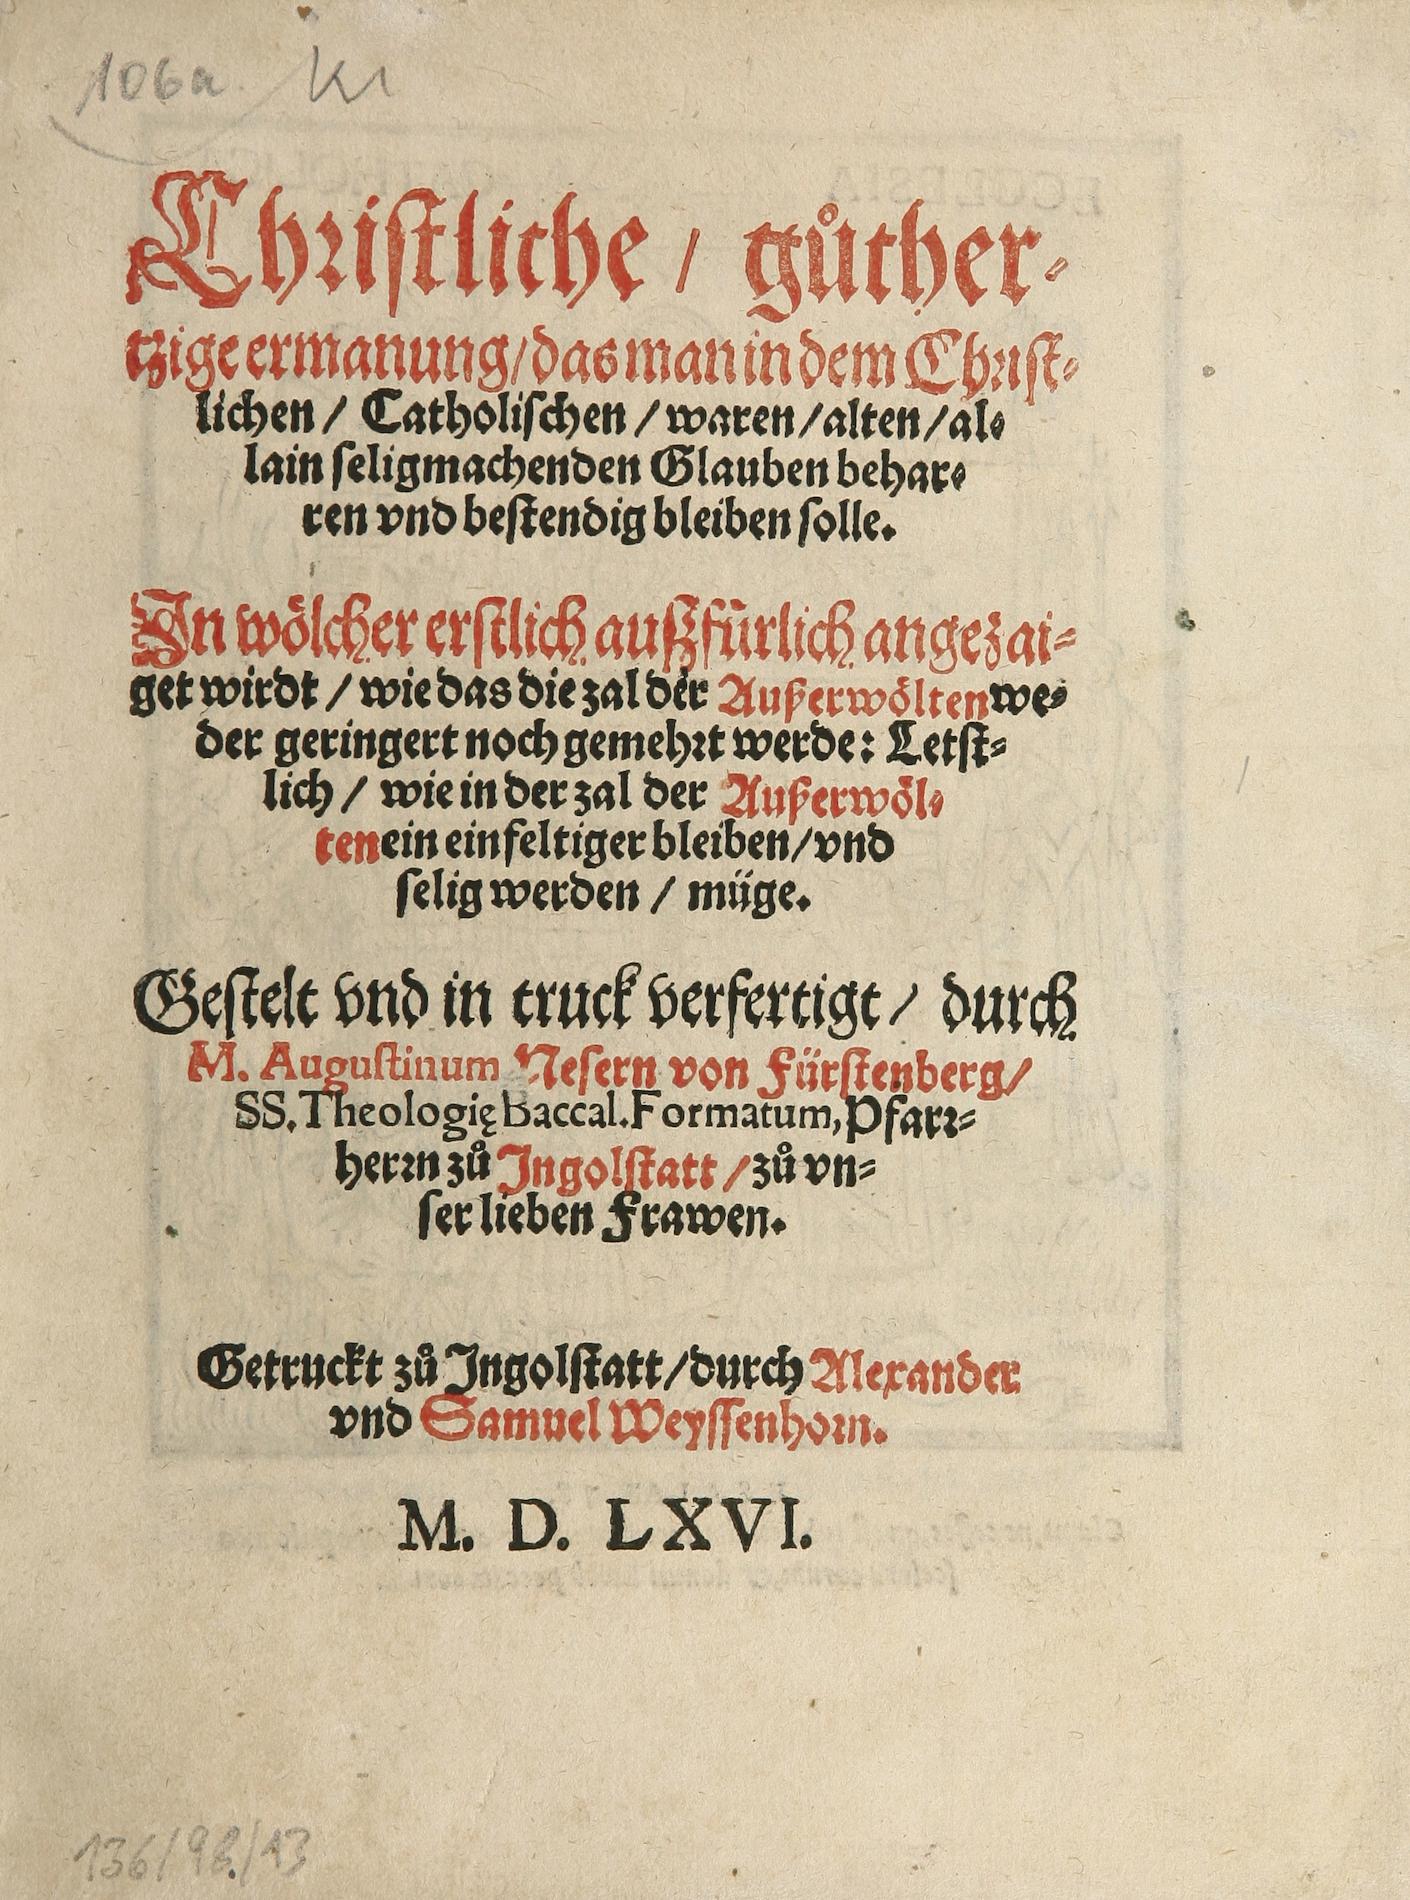 106a Kı
Christliche / gůther-
tzige ermanung / das man in dem Christ-
lichen / Catholischen / waren / alten / al-
lain seligmachenden Glauben behar-
ren vnd bestendig bleiben solle.
In wölcher erstlich außfürlich angezai-
get wirdt / wie das die zal der Außerwölten we-
der geringert noch gemehrt werde: Letst-
lich / wie in der zal der Außerwöl-
ten ein einfeltiger bleiben / vnd
selig werden / müge.
Gestelt vnd in truck verfertigt / durch
M. Augustinum Nesern von Fürstenberg /
SS. Theologię Baccal. Formatum, Pfarr-
herrn zů Ingolstatt / zů vn-
ser lieben Frawen.
Getruckt zů Ingolstatt / durch Alexander
vnd Samuel Weyssenhorn.
M. D. LXVI.
136/98/13